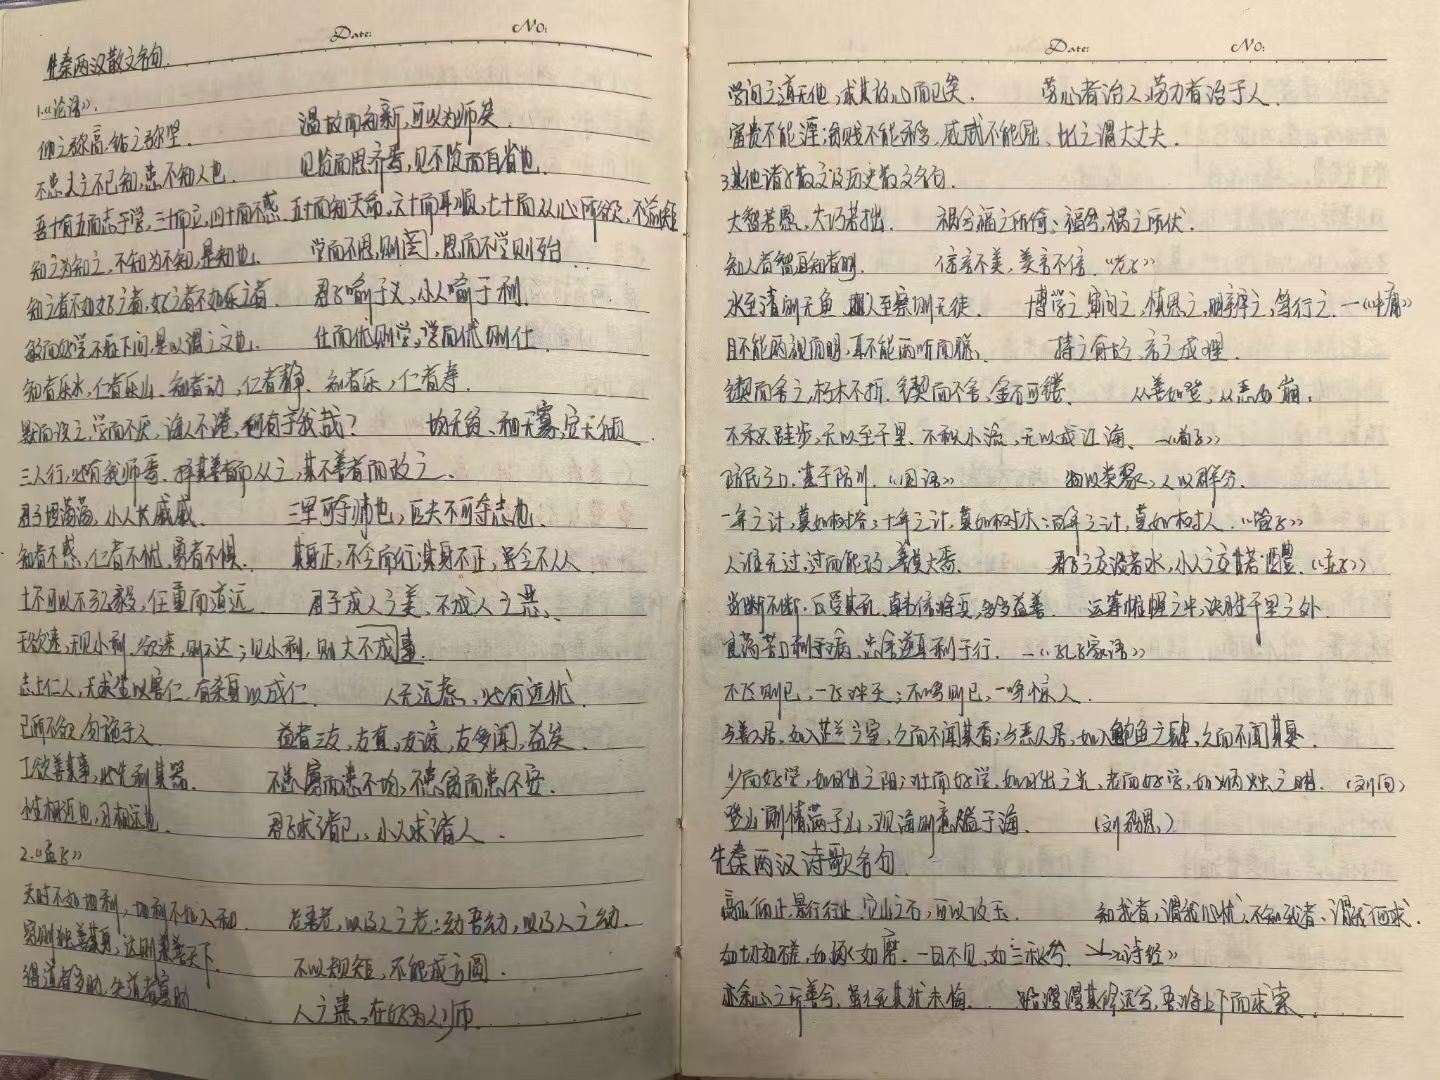 Date: No:
先秦两汉散文名句.
1.《论语》.
仰之弥高,钻之弥坚. 温故而知新,可以为师矣.
不患人之不己知,患不知人也. 见贤而思齐焉,见不贤而自省也.
吾十有五而志于学,三十而立,四十而不惑,五十而知天命,六十而耳顺,七十而从心所欲,不逾矩
知之为知之,不知为不知,是知也. 学而不思,则罔,思而不学则殆.
知之者不如好之者,好之者不如乐之者. 君子喻于义,小人喻于利.
敏而好学不耻下问,是以谓之文也. 仕而优则学,学而优则仕.
知者乐水,仁者乐山、知者动,仁者静、知者乐,仁者寿.
默而识之,学而不厌,诲人不倦,何有于我哉? 均无贫、和无寡,安无倾.
三人行,必有我师焉、择其善者而从之,其不善者而改之.
君子坦荡荡,小人长戚戚. 三军可夺帅也,匹夫不可夺志也.
知者不惑,仁者不忧,勇者不惧. 其身正,不令而行;其身不正,虽令不从
士不可以不弘毅,任重而道远. 君子成人之美、不成人之恶.
无欲速,无见小利、欲速,则不达;见小利,则大不成事.
志士仁人,无求生以害仁、有杀身以成仁. 人无远虑,必有近忧.
己所不欲,勿施于人. 益者三友,友直,友谅,友多闻,益矣.
工欲善其事,必先利其器. 不患寡而患不均,不患贫而患不安.
性相近也,习相远也. 君子求诸己,小人求诸人.
2.《孟子》
天时不如地利,地利不如人和. 老吾老,以及人之老;幼吾幼,以及人之幼.
穷则独善其身,达则兼善天下. 不以规矩,不能成方圆.
得道者多助,失道者寡助 人之患,在好为人师.
Date: No:
学问之道无他,求其放心而已矣. 劳心者治人,劳力者治于人.
富贵不能淫,贫贱不能移,威武不能屈,此之谓大丈夫.
3.其他诸子散文及历史散文名句.
大智若愚,大巧若拙. 祸兮福之所倚;福兮,祸之所伏.
知人者智,自知者明. 信言不美,美言不信.《老子》
水至清则无鱼 人至察则无徒. 博学之,审问之,慎思之,明辨之,笃行之.—《中庸》
目不能两视而明,耳不能两听而聪. 持之有故、言之成理.
锲而舍之,朽木不折.锲而不舍,金石可镂. 从善如登,从恶如崩.
不积跬步,无以至千里、不积小流,无以成江海、—《荀子》
防民之口,甚于防川.《国语》 物以类聚,人以群分.
一年之计,莫如树谷;十年之计,莫如树木;百年之计,莫如树人.《管子》
人谁无过,过而能改,善莫大焉. 君子之交淡若水,小人之交甘若醴.《庄子》
当断不断,反受其乱,韩信将兵,多多益善. 运筹帷幄之中,决胜千里之外.
良药苦口利于病,忠言逆耳利于行.—《孔子家语》
不飞则已,一飞冲天;不鸣则已,一鸣惊人.
与善人居,如入芝兰之室,久而不闻其香;与恶人居,如入鲍鱼之肆,久而不闻其臭.
少而好学,如日出之阳;壮而好学,如日出之光,老而好学,如炳烛之明. (刘向)
登山则情满于山,观海则意溢于海. (刘勰)
先秦两汉诗歌名句.
高山仰止,景行行止.它山之石,可以攻玉. 知我者,谓我心忧,不知我者、谓我何求.
如切如磋,如琢如磨.一日不见,如三秋兮.—《诗经》
亦余心之所善兮,虽九死其犹未悔. 路漫漫其修远兮,吾将上下而求索.